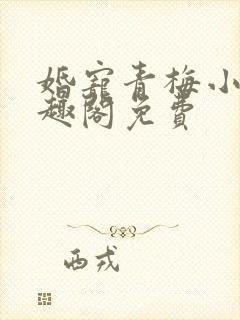 婚宠青梅小
趣阁免费
西戎